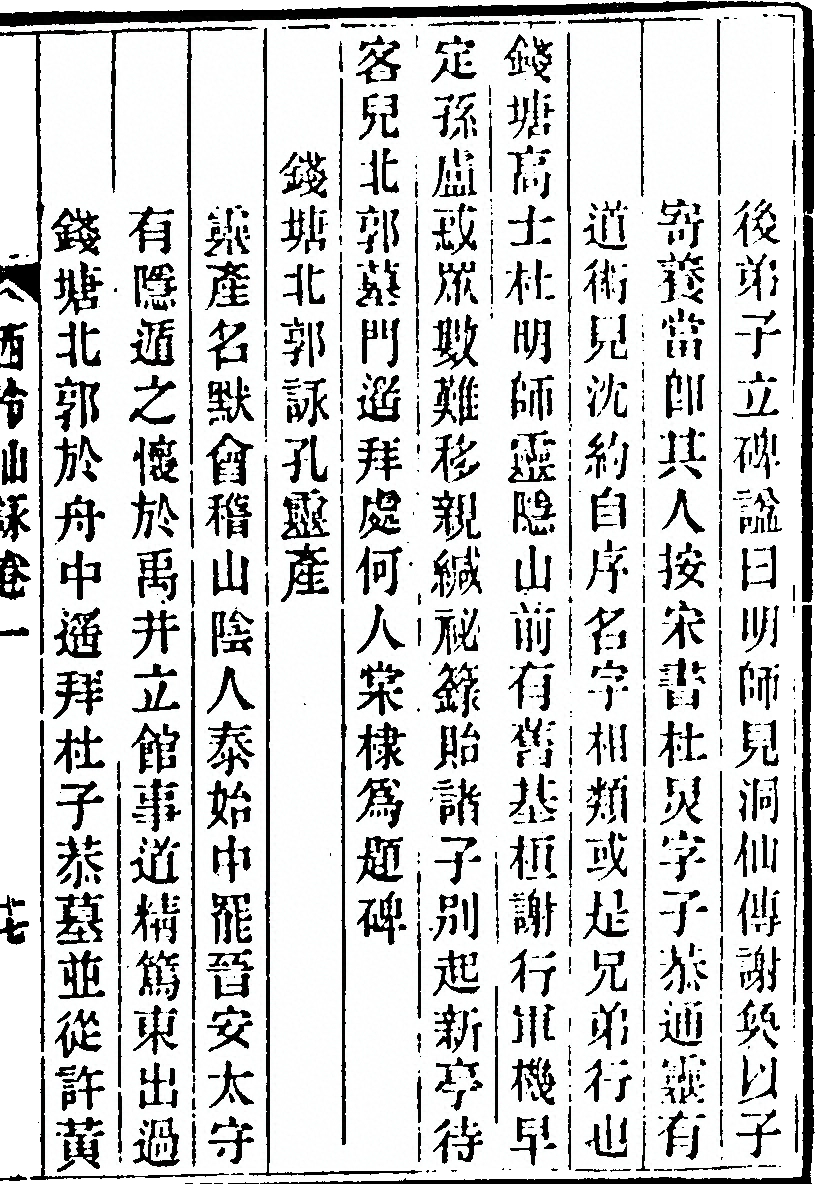 後弟子立碑諡曰明師見洞仙傳謝奐以子
寄養當卽其人按宋書杜炅字子恭通靈有
道術見沈約自序名字相類或是兄弟行也
錢塘高士杜明師靈隱山前有舊基桓謝行軍機早
定孫盧惑眾數難移親緘祕籙貽諸子別起新亭待
客兒北郭墓門遙拜處何人棠棣爲題碑
錢塘北郭詠孔靈產
靈產名默會稽山陰人泰始中罷晉安太守
有隱遁之懷於禹井立館事道精篤東出過
錢塘北郭於舟中遙拜杜子恭墓並從許黃
西泠仙詠卷一 十七